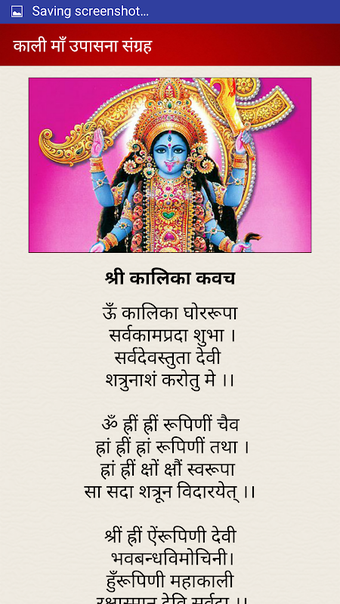 Saving screenshot...
काली माँ उपासना संग्रह
श्री कालिका कवच
ऊँ कालिका घोररूपा
सर्वकामप्रदा शुभा ।
सर्वदेवस्तुता देवी
शत्रुनाशं करोतु मे ।।
ॐ ह्रीं ह्रीं रूपिणीं चैव
ह्रां ह्रीं ह्रां रूपिणीं तथा ।
ह्रां ह्रीं क्षों क्षौं स्वरूपा
सा सदा शत्रून विदारयेत् ।।
श्रीं ह्रीं ऐंरूपिणी देवी
भवबन्धविमोचिनी।
हुँरूपिणी महाकाली
रक्षास्मान देवि सर्वदा ।।